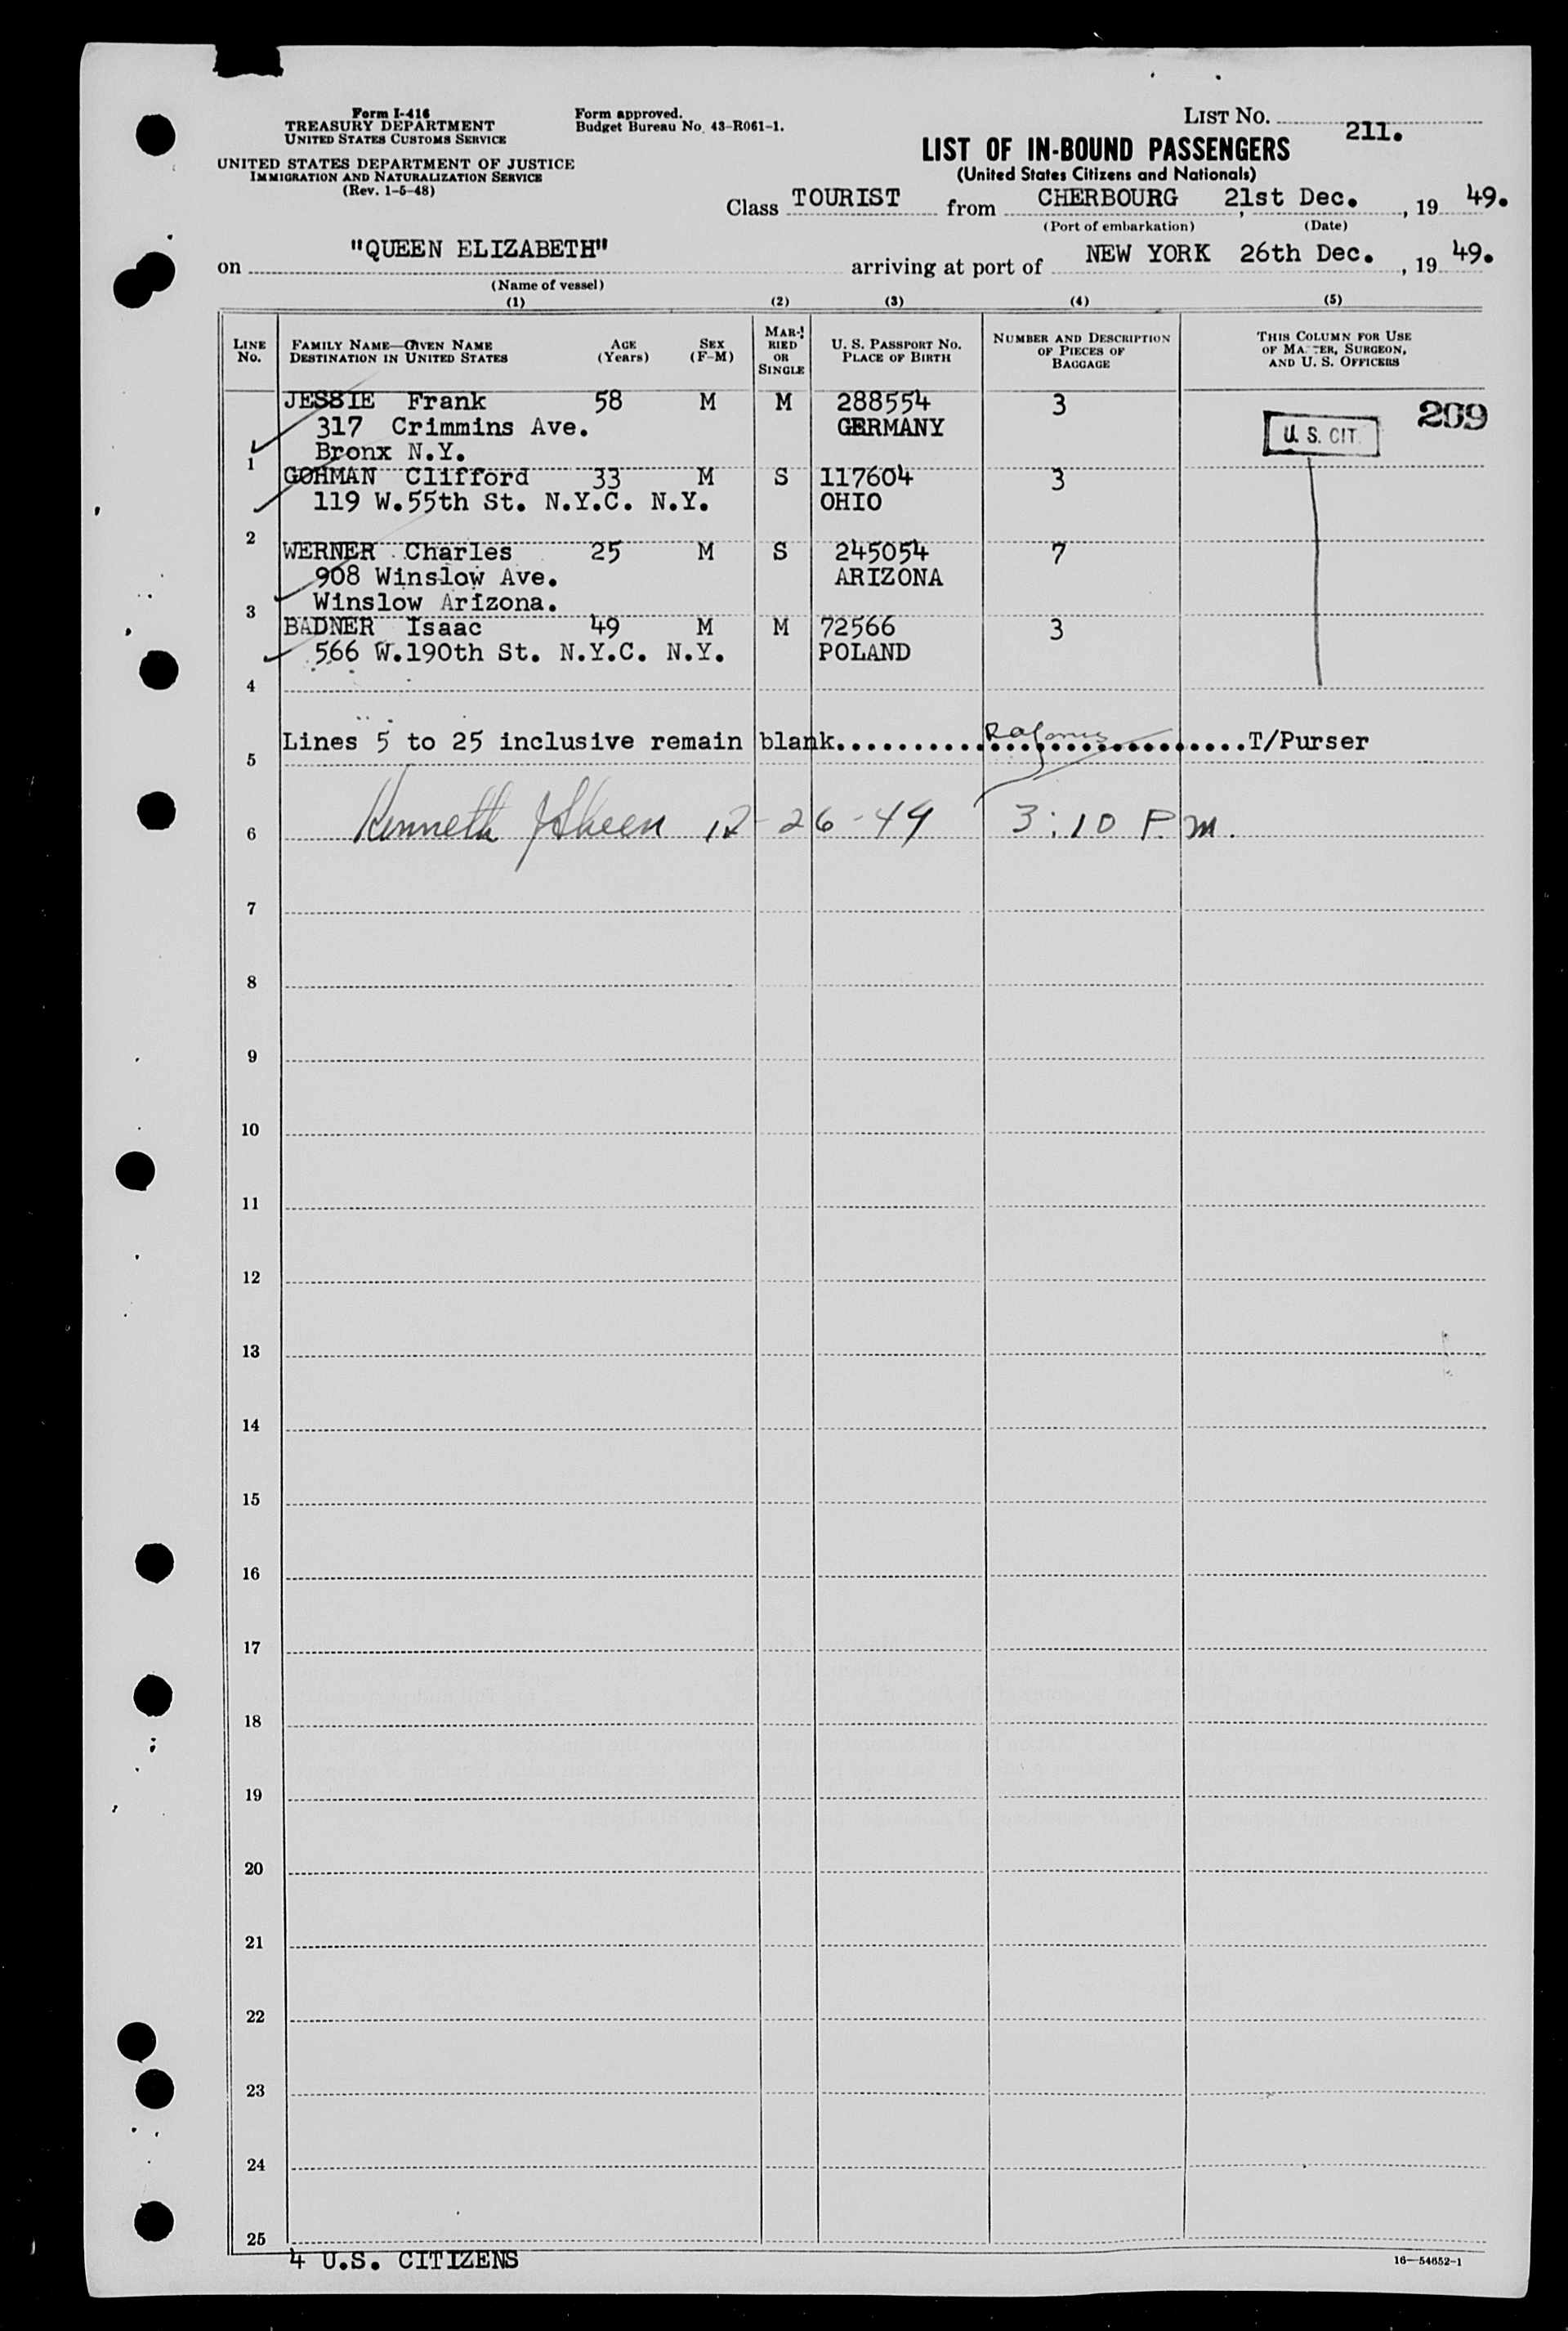 Form I-416
TREASURY DEPARTMENT
UNITED STATES CUSTOMS SERVICE
UNITED STATES DEPARTMENT OF JUSTICE
IMMIGRATION AND NATURALIZATION SERVICE
(Rev. 1-5-48)
Form approved.
Budget Bureau No. 43-R061-1.
LIST NO. 211.
LIST OF IN-BOUND PASSENGERS
(United States Citizens and Nationals)
Class TOURIST from CHERBOURG 21st Dec., 19 49.
(Port of embarkation) (Date)
on "QUEEN ELIZABETH" arriving at port of NEW YORK 26th Dec., 19 49.
(Name of vessel)
(1) (2) (3) (4) (5)
LINE No. FAMILY NAME—GIVEN NAME DESTINATION IN UNITED STATES AGE (Years) SEX (F-M) MARRIED OR SINGLE U. S. PASSPORT NO. PLACE OF BIRTH NUMBER AND DESCRIPTION OF PIECES OF BAGGAGE THIS COLUMN FOR USE OF MASTER, SURGEON, AND U. S. OFFICERS
JESSIE Frank 58 M M 288554 3 209
317 Crimmins Ave. GERMANY U. S. CIT.
1 Bronx N.Y.
GOHMAN Clifford 33 M S 117604 3
119 W.55th St. N.Y.C. N.Y. OHIO
2
WERNER Charles 25 M S 245054 7
908 Winslow Ave. ARIZONA
3 Winslow Arizona.
BADNER Isaac 49 M M 72566 3
566 W.190th St. N.Y.C. N.Y. POLAND
4
Lines 5 to 25 inclusive remain blank...........................T/Purser
5
6 Kenneth J Skeen 12-26-49 3:10 P.m.
7
8
9
10
11
12
13
14
15
16
17
18
19
20
21
22
23
24
25
4 U.S. CITIZENS
16—54652-1